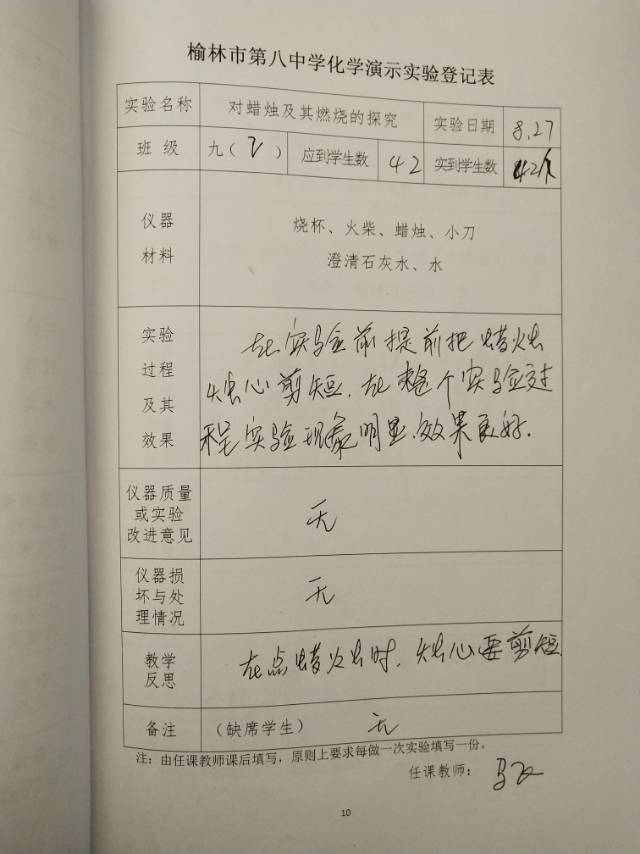 榆林市第八中学化学演示实验登记表
实验名称 对蜡烛及其燃烧的探究 实验日期 8.27
班 级 九(2) 应到学生数 42 实到学生数 42人
仪器
材料
烧杯、火柴、蜡烛、小刀
澄清石灰水、水
实验
过程
及其
效果
在实验前提前把蜡烛
烛心剪短.在整个实验过
程实验现象明显.效果良好.
仪器质量
或实验
改进意见
无
仪器损
坏与处
理情况
无
教学
反思
在点蜡烛时.烛心要剪短
备注 (缺席学生) 无
注:由任课教师课后填写,原则上要求每做一次实验填写一份。
任课教师: 马
10